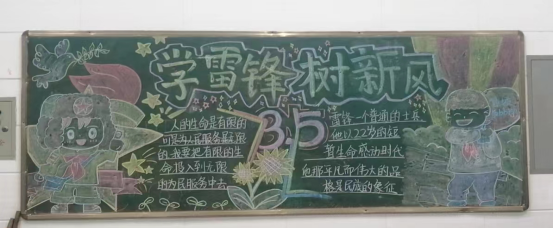 学雷锋 树新风
3.5
人的生命是有限的
可是为人民服务是无限
的,我要把有限的生
命投入到无限
的为民服务中去
雷锋一个普通的士兵
他以22岁的短
暂生命感动时代
他那平凡而伟大的品
格是民族的象征